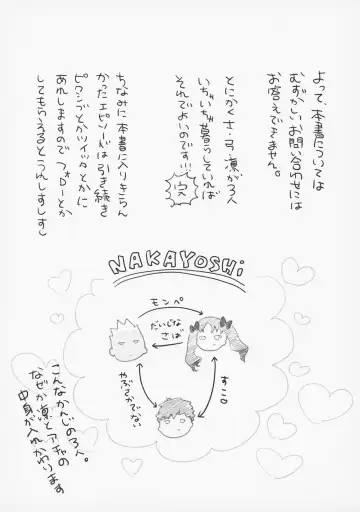 よって、本書については
むずかしいお問い合わせには
お答えできません。
とにかく士・弓・凛が3人
いちゃいちゃ暮らしていれば
それでよいのです!!!
(完)
ちなみに本書に入りきらん
かったエピソードは引き続き
ピクシブとかツイッタとかに
あれしますので フォローとか
してもらえるとうれしすしすし
NAKAYOSHi
モンペ
だいじな
さば
すこ
やぶさかでない
こんなかんじの3人。
なぜか凛とアチャの
中身が入れかわります